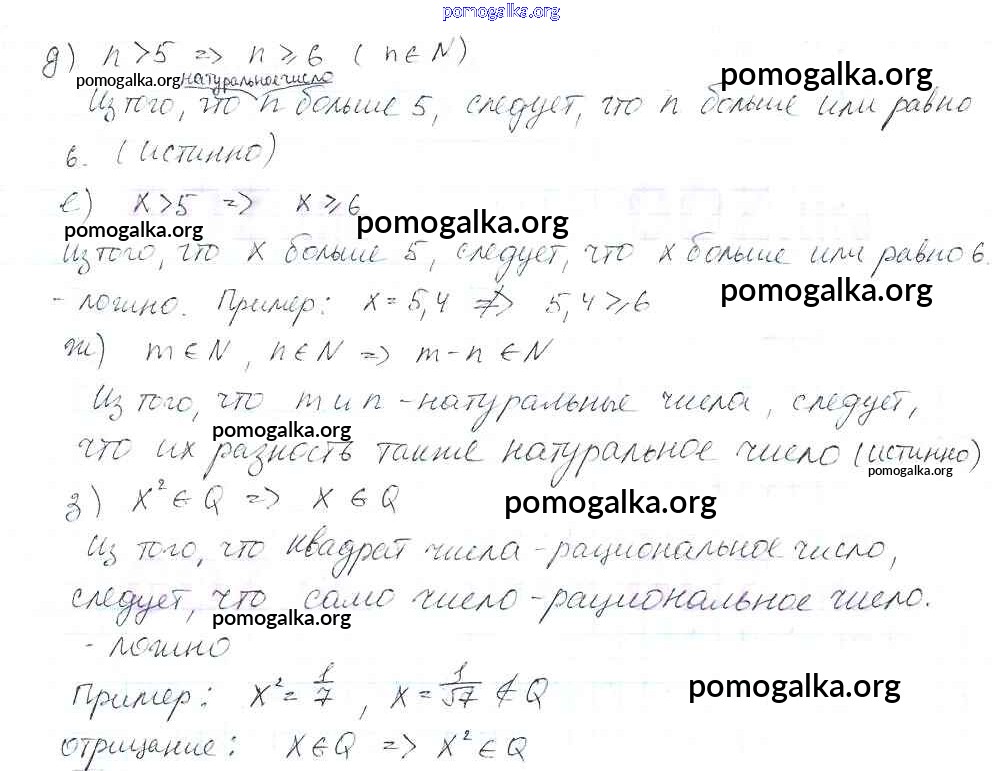 pomogalka.org
д) n>5 => n⩾6 (n∈N)
pomogalka.org натуральное число pomogalka.org
Из того, что n больше 5, следует, что n больше или равно
6. (истинно)
е) x>5 => x⩾6
pomogalka.org pomogalka.org
Из того, что x больше 5, следует, что x больше или равно 6.
- ложно. Пример: x=5,4 ≠> 5,4⩾6 pomogalka.org
ж) m∈N, n∈N => m-n∈N
Из того, что m и n - натуральные числа, следует,
pomogalka.org
что их разность также натуральное число (истинно)
pomogalka.org
з) x²∈Q => x∈Q pomogalka.org
Из того, что квадрат числа - рациональное число,
следует, что само число - рациональное число.
pomogalka.org
- ложно
Пример: x²=1/7, x=1/√7 ∉Q pomogalka.org
отрицание: x∈Q => x²∈Q